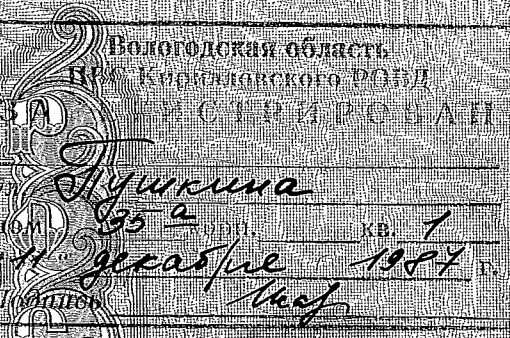 Вологодская область
ПВС Кирилловского РОВД
ЗАРЕГИСТРИРОВАН
Пушкина
дом 35 а орп. кв. 1
"11" декабря 1987 г.
Подпись